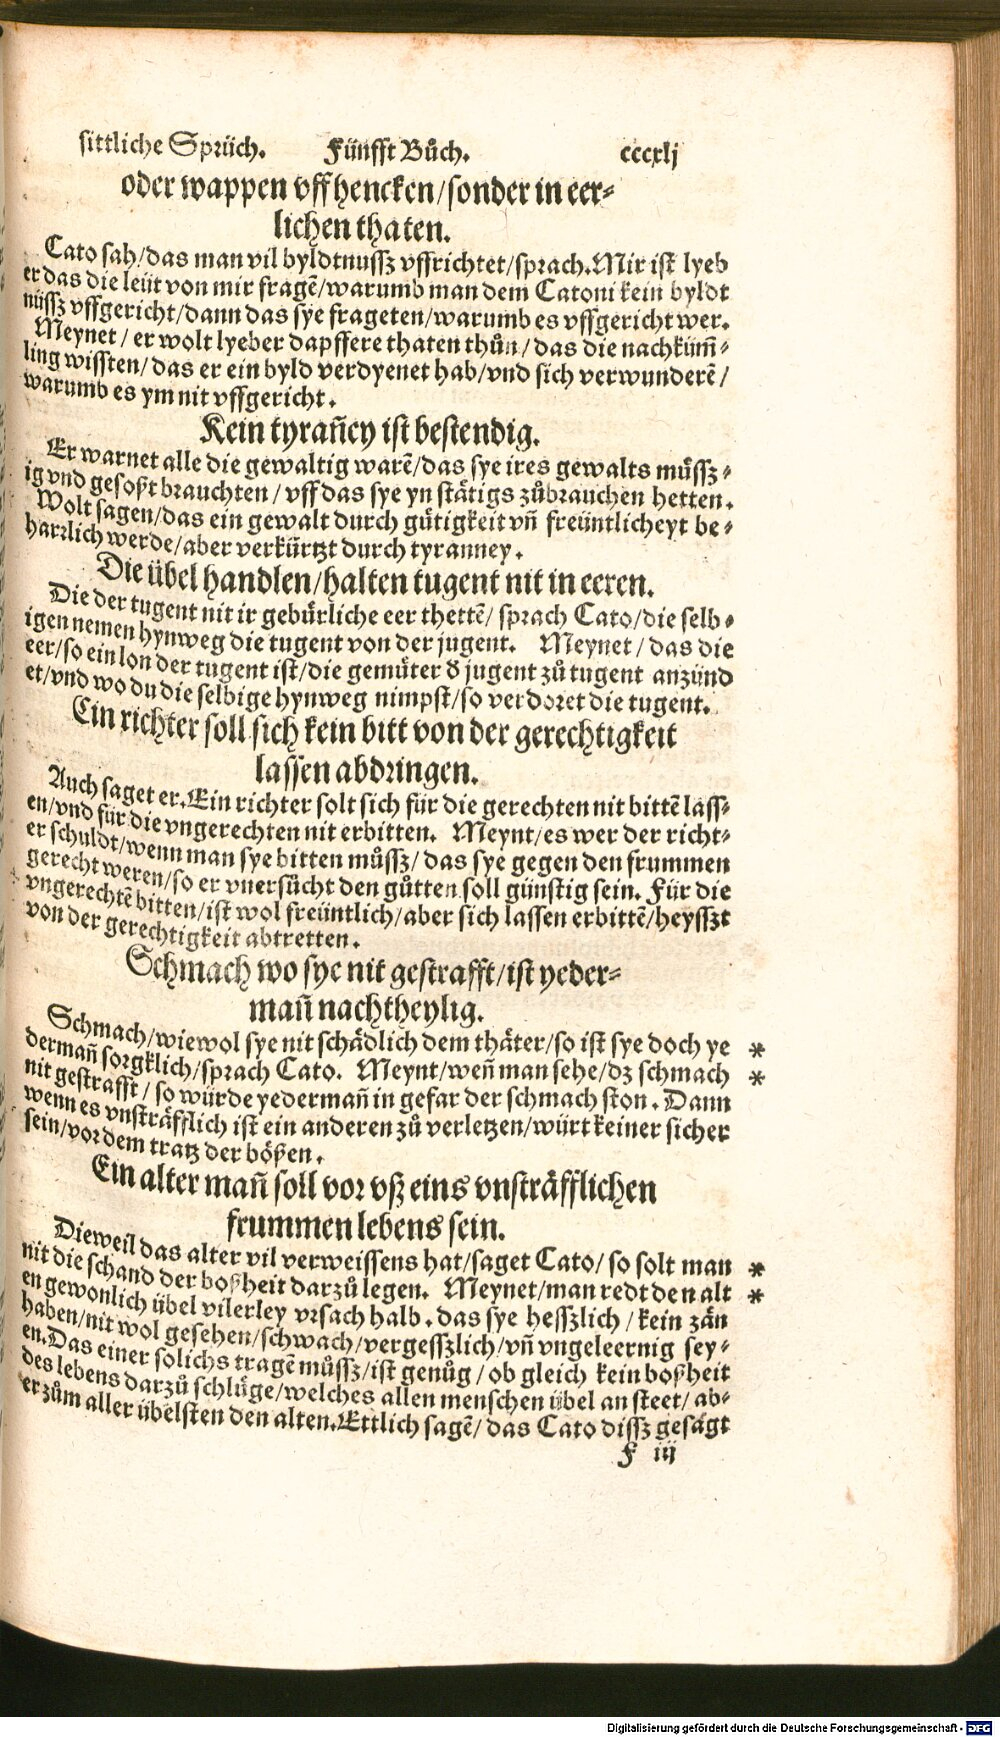 sittliche Sprüch. Fünfft Bůch. cccxlj
oder wappen vffhencken/sonder in eer⸗
lichen thaten.
Cato sah/das man vil byldtnussz vffrichtet/sprach. Mir ist lyeb
er das die leüt von mir fragẽ/warumb man dem Catoni kein byldt
nüssz vffgericht/dann das sye frageten/warumb es vffgericht wer.
Meynet/ er wolt lyeber dapffere thaten thůn/ das die nachküm̃⸗
ling wissten/das er ein byld verdyenet hab/vnd sich verwunderẽ/
warumb es ym nit vffgericht.
Kein tyrañey ist bestendig.
Er warnet alle die gewaltig warẽ/das sye ires gewalts müssz⸗
ig vnd gesoßt brauchten/ vff das sye yn stätigs zůbrauchen hetten.
Wolt sagen/das ein gewalt durch gütigkeit vñ freüntlicheyt be⸗
harrlich werde/aber verkürtzt durch tyranney.
Die übel handlen/halten tugent nit in eeren.
Die der tugent nit ir gebürliche eer thettẽ/ sprach Cato/die selb⸗
igen nemen hynweg die tugent von der jugent. Meynet/ das die
eer/so ein lon der tugent ist/die gemüter d̕ jugent zů tugent anzünd
et/vnd wo du die selbige hynweg nimpst/so verdorret die tugent.
Ein richter soll sich kein bitt von der gerechtigkeit
lassen abdringen.
Auch saget er. Ein richter solt sich für die gerechten nit bittẽ lass⸗
en/vnd für die vngerechten nit erbitten. Meynt/es wer der richt⸗
er schuldt/wenn man sye bitten müssz/ das sye gegen den frummen
gerecht weren/so er vnersücht den gůtten soll günstig sein. Für die
vngerechtẽ bitten/ist wol freüntlich/aber sich lassen erbittẽ/heysszt
von der gerechtigkeit abtretten.
Schmach wo sye nit gestrafft/ist yeder⸗
mañ nachtheylig.
Schmach/wiewol sye nit schädlich dem thäter/so ist sye doch ye *
dermañ sorgklich/sprach Cato. Meynt/weñ man sehe/dz schmach *
nit gestrafft/ so würde yedermañ in gefar der schmach ston. Dann
wenn es vnsträfflich ist ein anderen zů verletzen/würt keiner sicher
sein/vor dem tratz der bößen.
Ein alter mañ soll vor vß eins vnsträfflichen
frummen lebens sein.
Dieweil das alter vil verweissens hat/saget Cato/ so solt man *
nit die schand der boßheit darzů legen. Meynet/man redt den alt *
en gewonlich übel vilerley vrsach halb. das sye hesszlich/ kein zän
haben/nit wol gesehen/schwach/vergesszlich/vñ vngeleernig sey⸗
en. Das einer solichs tragẽ müssz/ist genůg/ ob gleich kein boßheit
des lebens darzů schlüge/welches allen menschen übel an steet/ ab⸗
er zům aller übelsten den alten. Ettlich sagẽ/ das Cato dissz gesagt
F iij
Digitalisierung gefördert durch die Deutsche Forschungsgemeinschaft - DFG